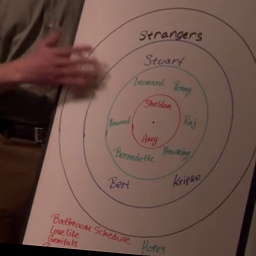 Strangers
Stuart
Leonard Penny
Sheldon
Howard Raj
Amy
Bernadette Hawking
Bert Kripke
Bathroom Schedule
Genitals